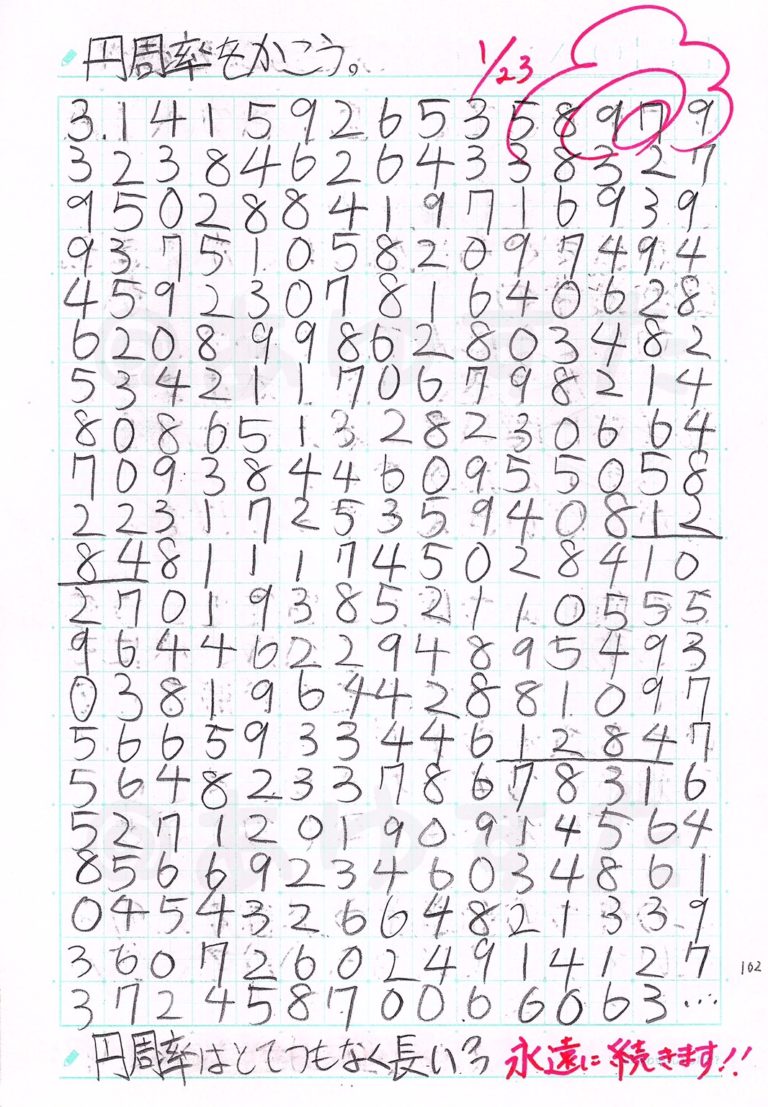 円周率をかこう。 1/23
3.14159265358979
323846264338327
950288419716939
937510582097494
459230781640628
620899862803482
534211706798214
808651328230664
709384460955058
223172535940812
848111745028410
270193852110555
964462294895493
038196442881097
566593344612847
564823378678316
527120190914564
856692346034861
045432664821339
360726024914127
102
37245870066063…
円周率はとてつもなく長い 永遠に続きます!!